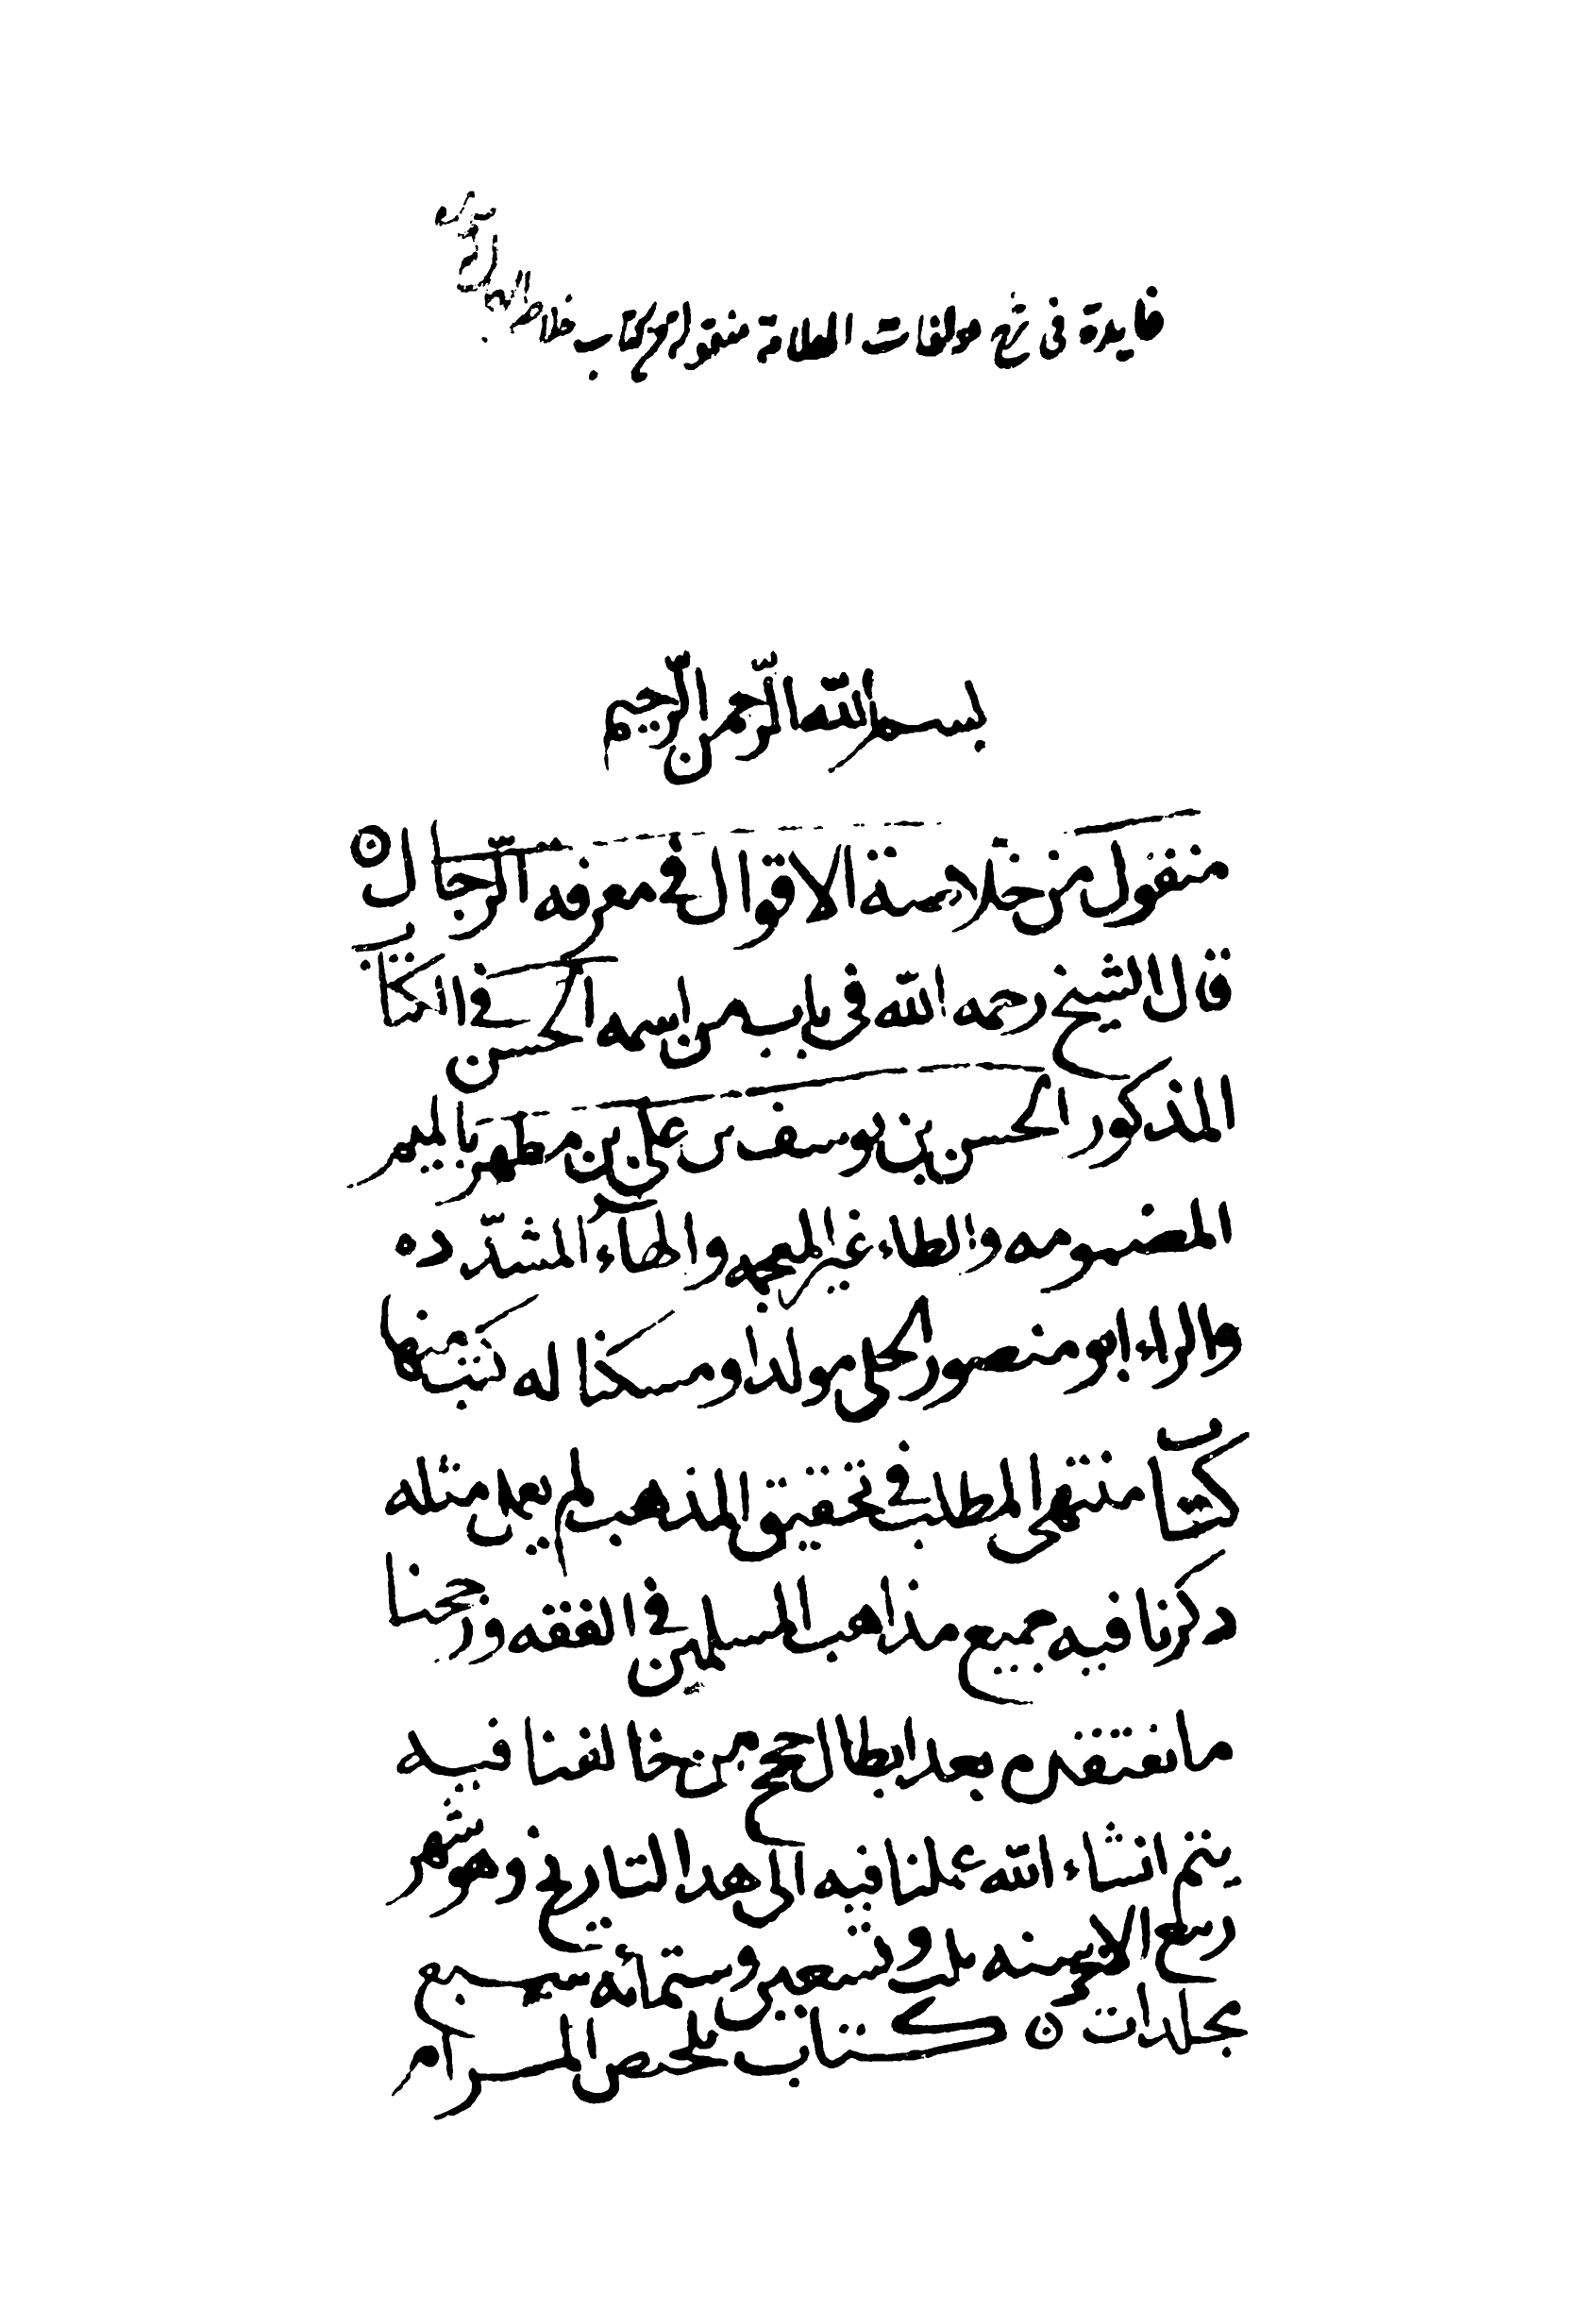 فايدة في شرح مولفات العلامة منقولة من كتاب خلاصة
بسم الله الرّحمن الرّحيم
منقول من خلاصة الاقوال في معرفه الرّجال ه
قال الشيخ رحمه اللّه في باب من اسمه الحسن في الكتاب
المذكور الحسن بن يوسف بن على بن مطهر بالميم
المضمومه والطاء غير المعجمه والهاء المشدّده
والراء ابو منصور الحلى مولدا ومسكنا له كتب منها
كتاب منتهى المطلب في تحقيق المذهب لم يعمل مثله
دكرنا فيه جميع مذاهب المسلمين في الفقه ورجحنا
ما نعتقده بعد ابطال حجج من خالفنا فيه
يتم انشاء اللّه عملنا فيه الى هدا التاريخ وهو شهر
ربيع الاخر سنه ثلث وتسعين وستمائه سبع
مجلدات ه كتاب تلخيص المرام